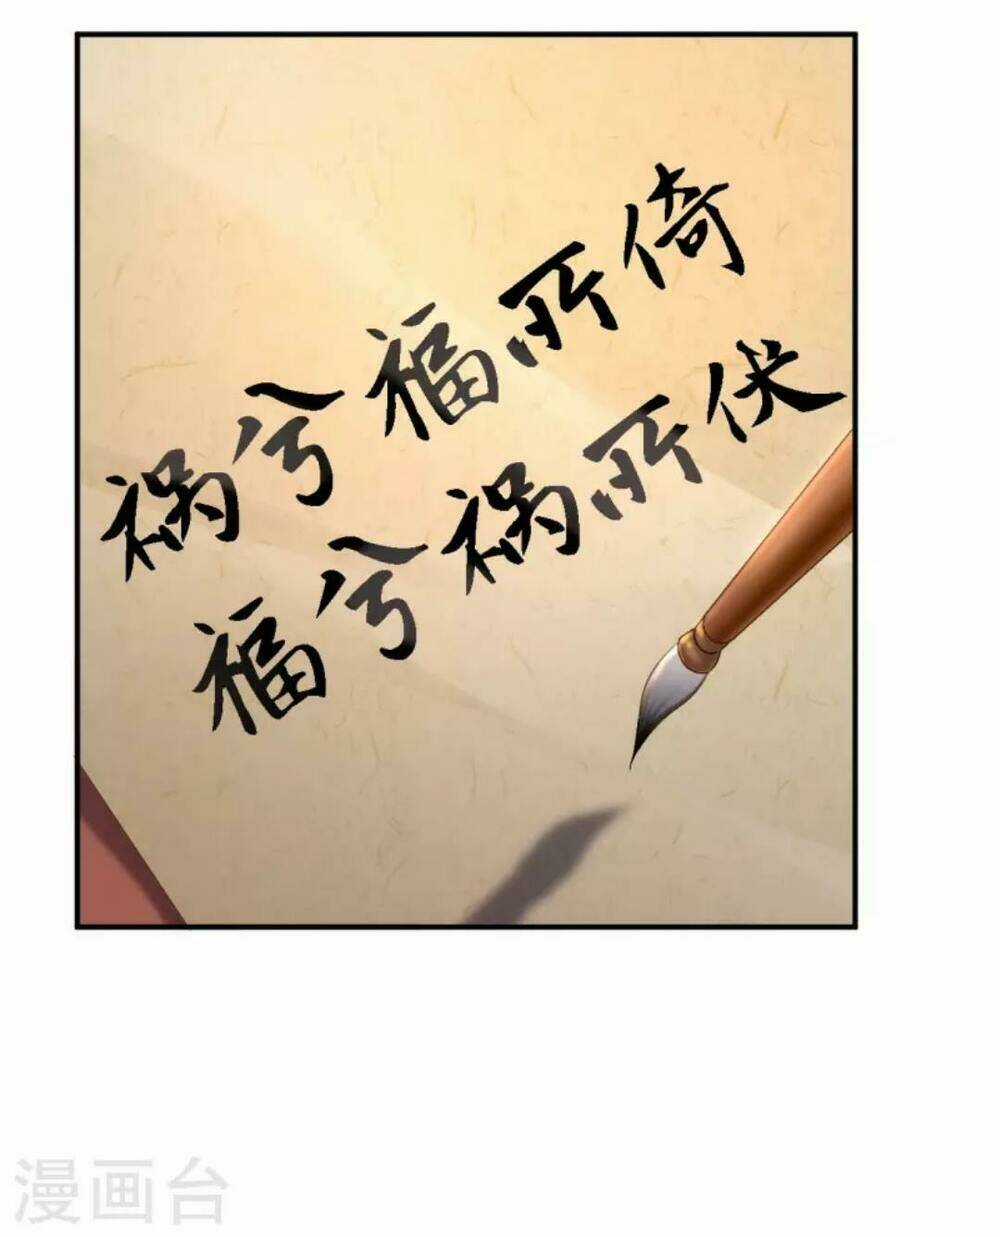 祸兮福所倚
福兮祸所伏
漫画台